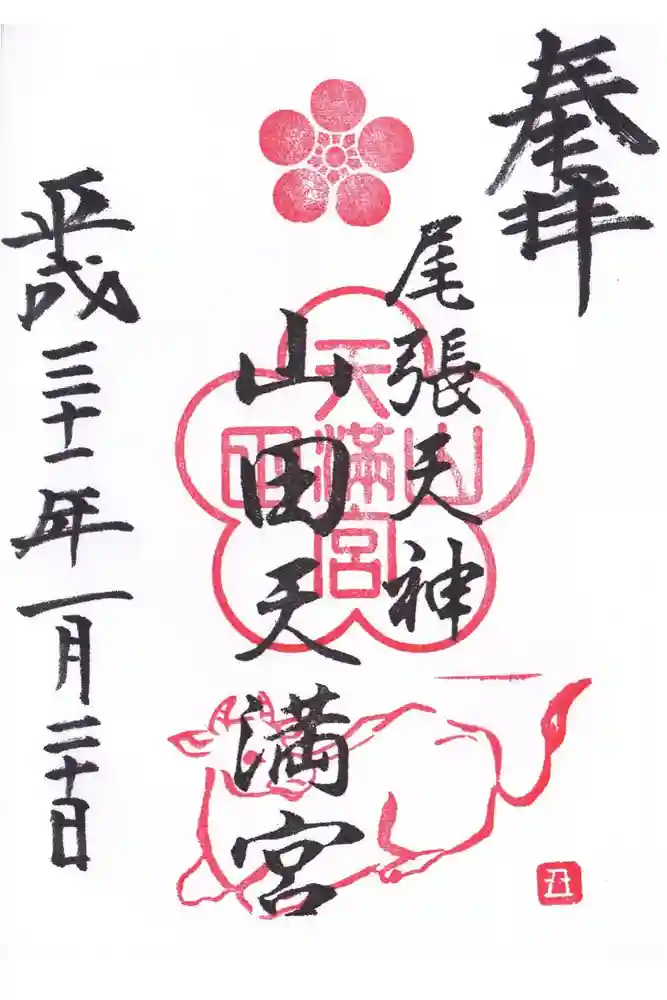 奉拝
尾張天神
山田天満宮
天満宮
山田
平成三十一年一月二十日
丑